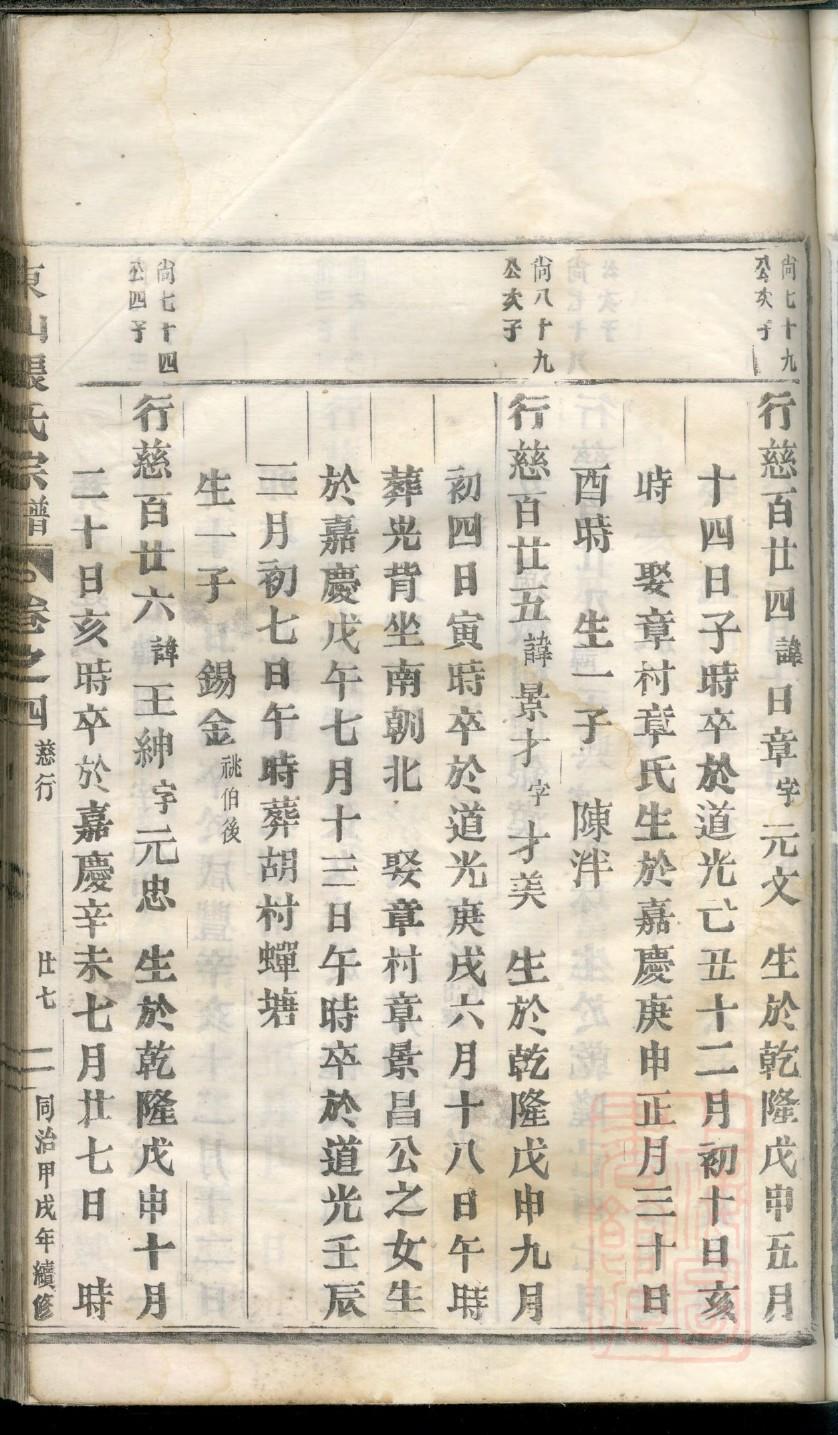 尙七十九
公次子
行慈百廿四諱日章字元文　生於乾隆戊申五月
十四日子時卒於道光己丑十二月初十日亥
時　娶章村章氏生於嘉慶庚申正月三十日
酉時　生一子　陳泮
尙八十九
公次子
行慈百廿五諱景才字才美　生於乾隆戊申九月
初四日寅時卒於道光庚戌六月十八日午時
葬光背坐南朝北　娶章村章景昌公之女生
於嘉慶戊午七月十三日午時卒於道光壬辰
三月初七日午時葬胡村蟬塘
生一子　錫金祧伯後
尙七十四
公四子
行慈百廿六諱王紳字元忠　生於乾隆戊申十月
二十日亥時卒於嘉慶辛未七月廿七日　時
東山張氏宗譜　卷之四　慈行　廿七　同治甲戌年續修